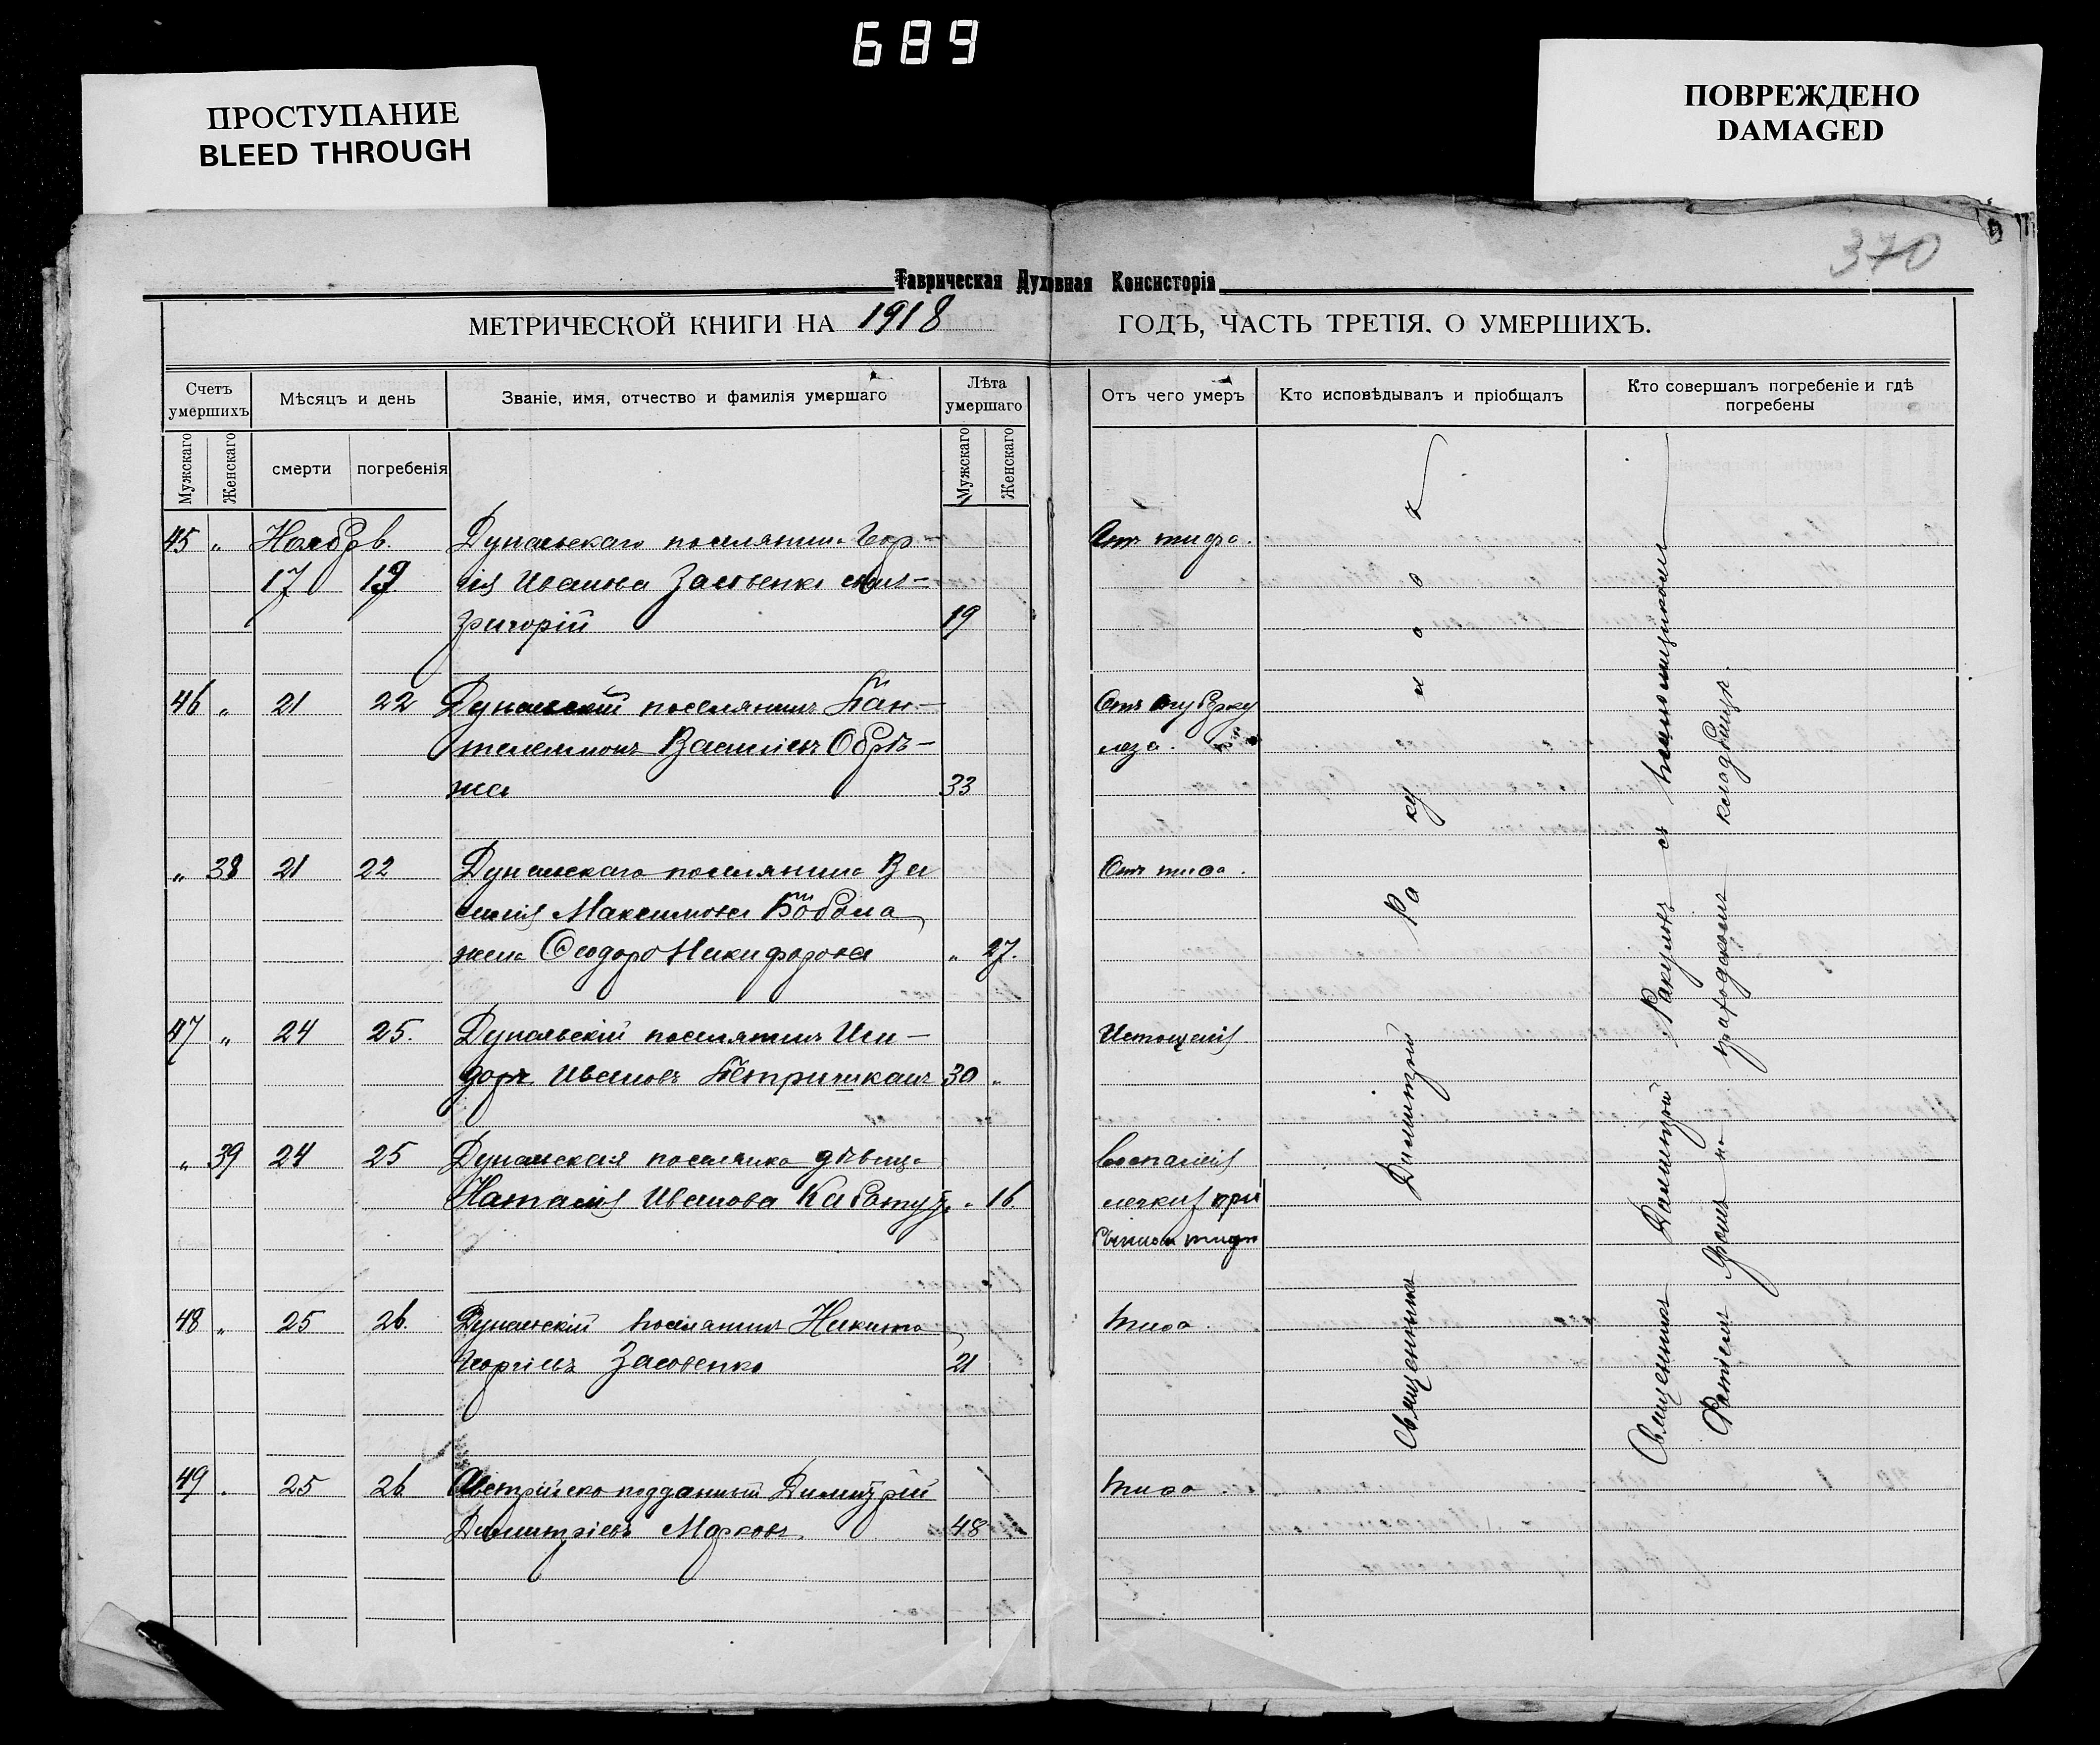 689
ПРОСТУПАНИЕ
BLEED THROUGH
ПОВРЕЖДЕНО
DAMAGED
370
Таврическая Духовная Консисторія
МЕТРИЧЕСКОЙ КНИГИ НА 1918 ГОДЪ, ЧАСТЬ ТРЕТІЯ. О УМЕРШИХЪ.
Счетъ умершихъ
Мужскаго
Женскаго
Мѣсяцъ и день
смерти
погребенія
Званіе, имя, отчество и фамилія умершаго
Лѣта умершаго
Мужскаго
Женскаго
Отъ чего умеръ
Кто исповѣдывалъ и пріобщалъ
Кто совершалъ погребеніе и гдѣ погребены
45 „ Ноябрь. Дунаевскаго поселянина Геор- Отъ тифа.
17 19 гія Иванова сынъ-
Григорій 19
46 „ 21 22 Дунаевскій поселянинъ Пан- Отъ туберку
телеимонъ Василіевъ Обрѣ- леза.
жа 33
„ 38 21 22 Дунаевскаго поселянина Ва Отъ тифа.
силія Максимова
жена Ѳеодора Никифорова „ 27.
47 „ 24 25. Дунаевскій поселянинъ Иси- Истощенія
доръ Ивановъ 30 „
„ 39 24 25 Дунаевская поселянка дѣвица Воспаленія
Наталія Иванова „ 16. легкихъ при
тифѣ
48 „ 25 26. Дунаевскій поселянинъ Никита Тифа.
Георгіевъ 21
49 „ 25 26 Австрійско подданный Димитрій Тифа
Димитріевъ Марковъ 48
Священникъ Димитрій Ракуловъ
Священникъ Димитрій Ракуловъ съ псаломщикомъ
на приходскомъ кладбищѣ.